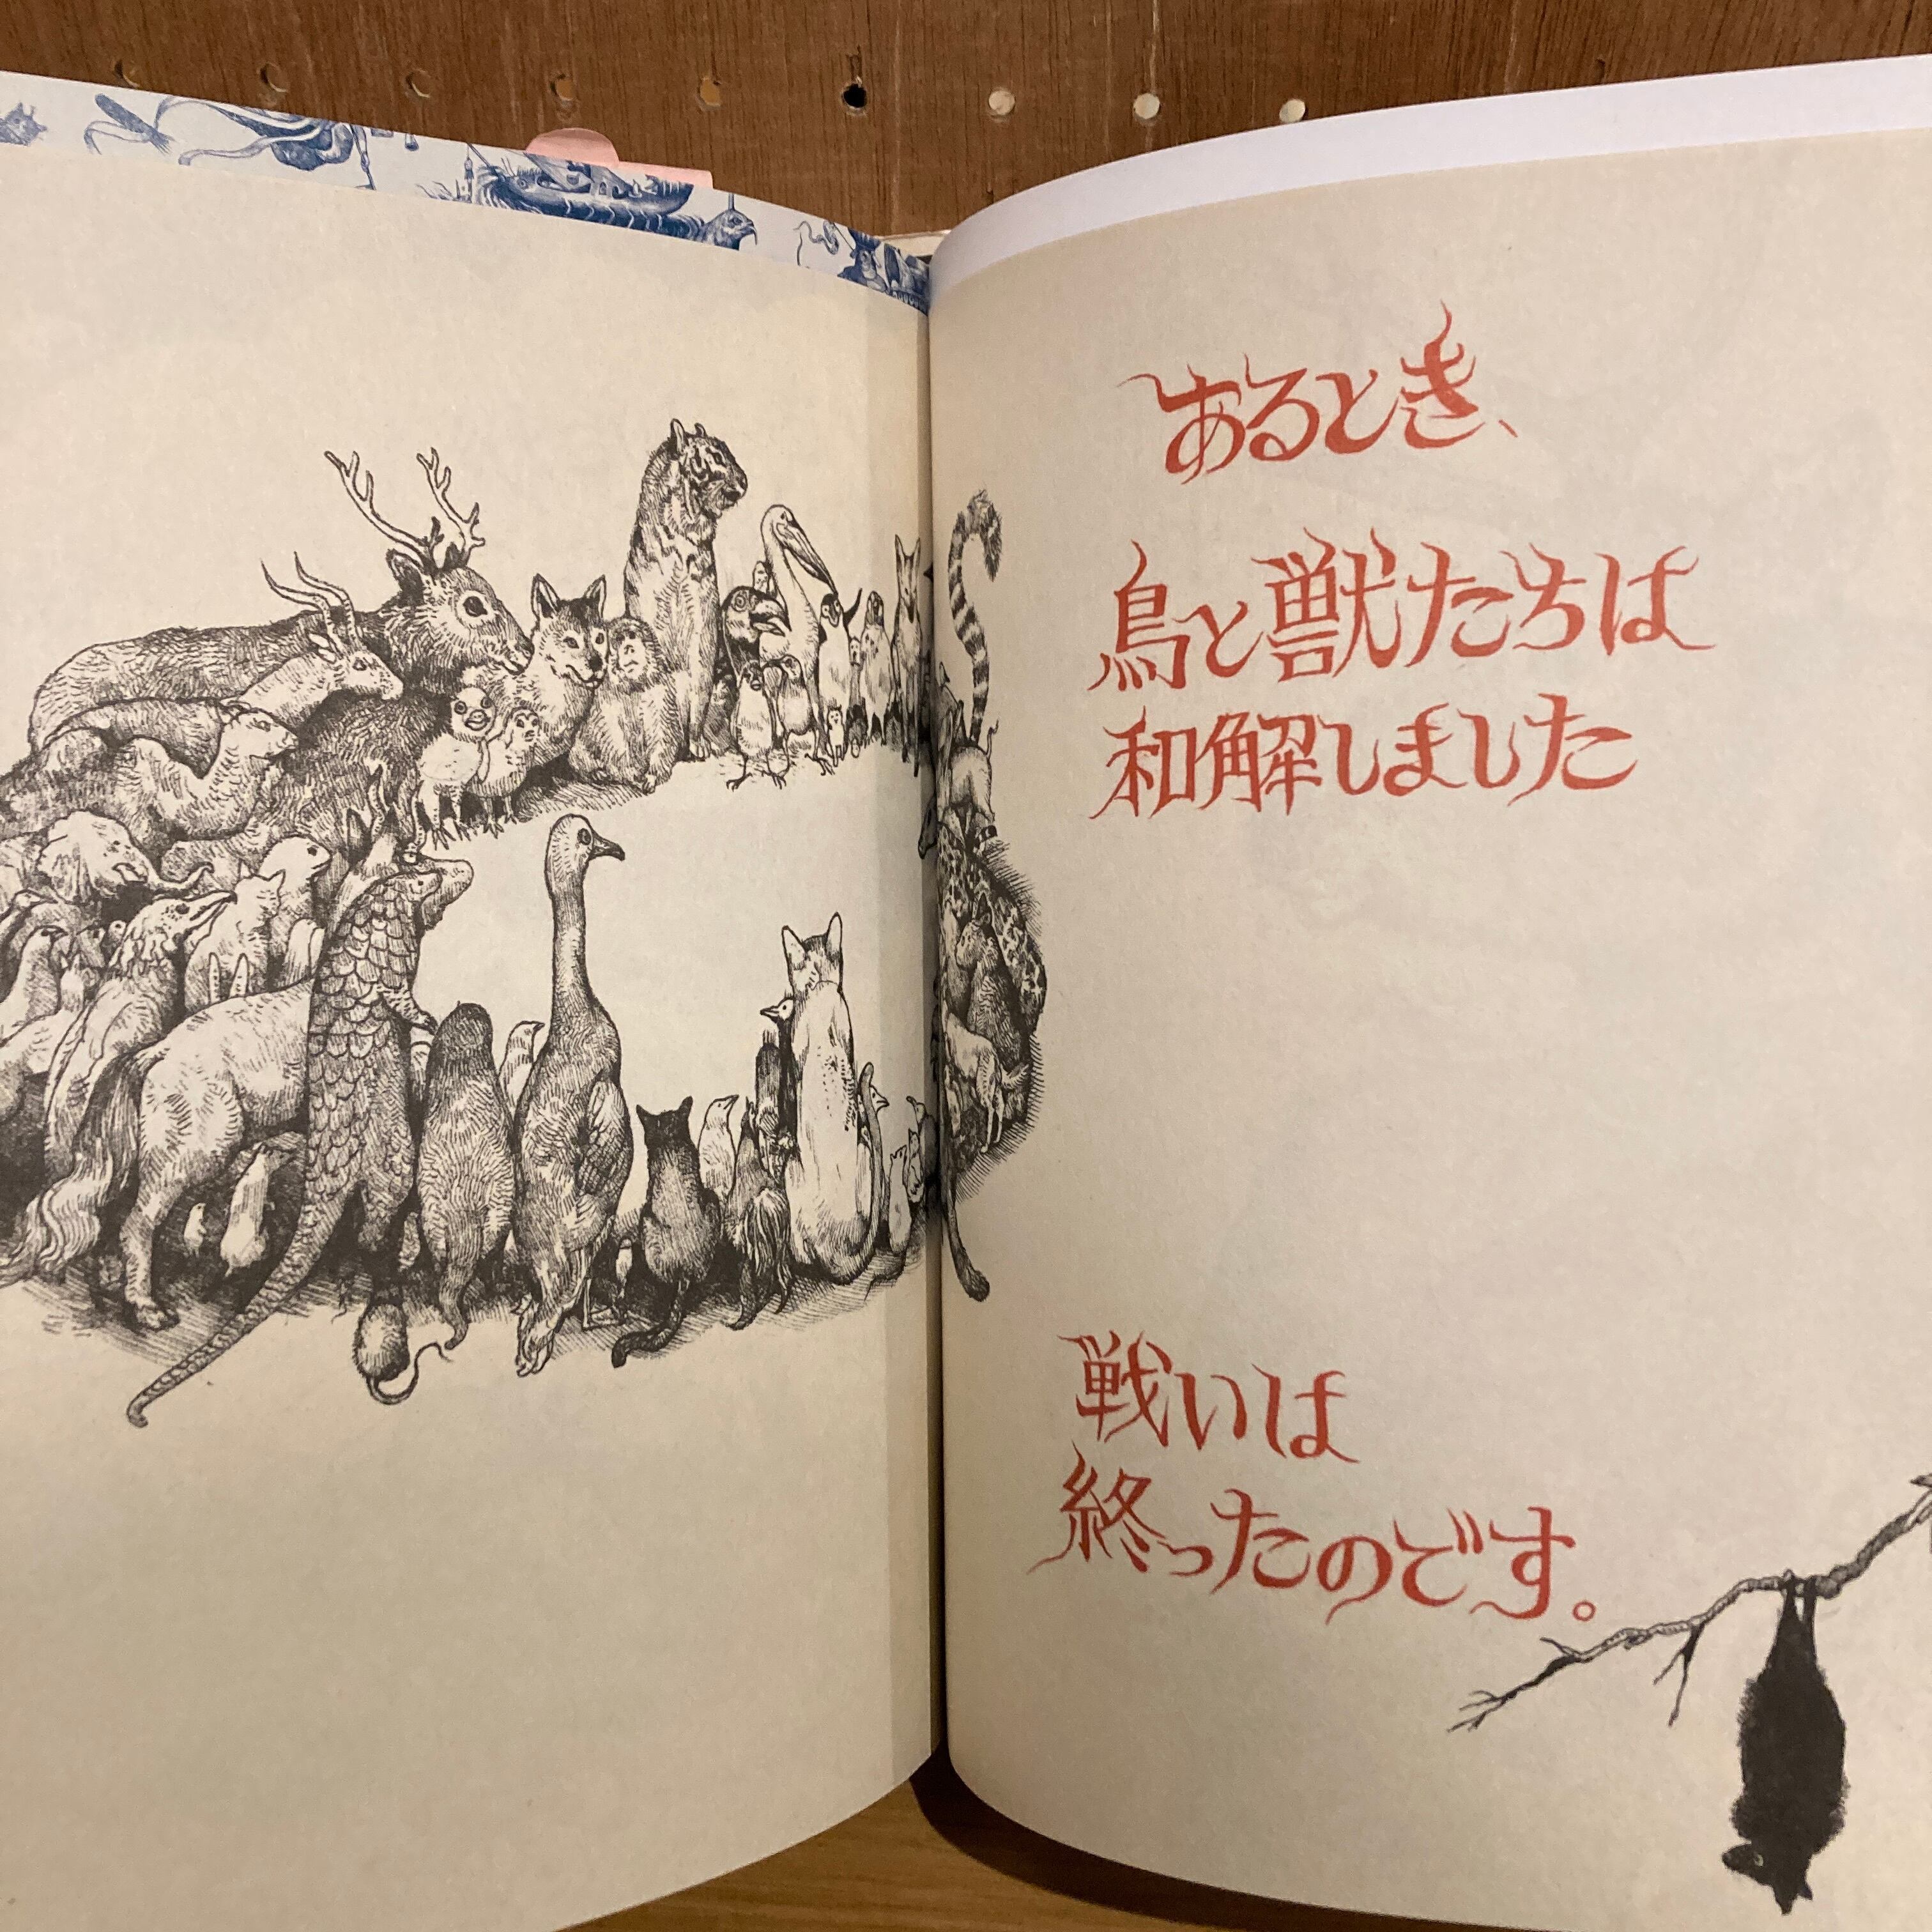 あるとき、
鳥と獣たちは
和解しました
戦いは
終ったのです。